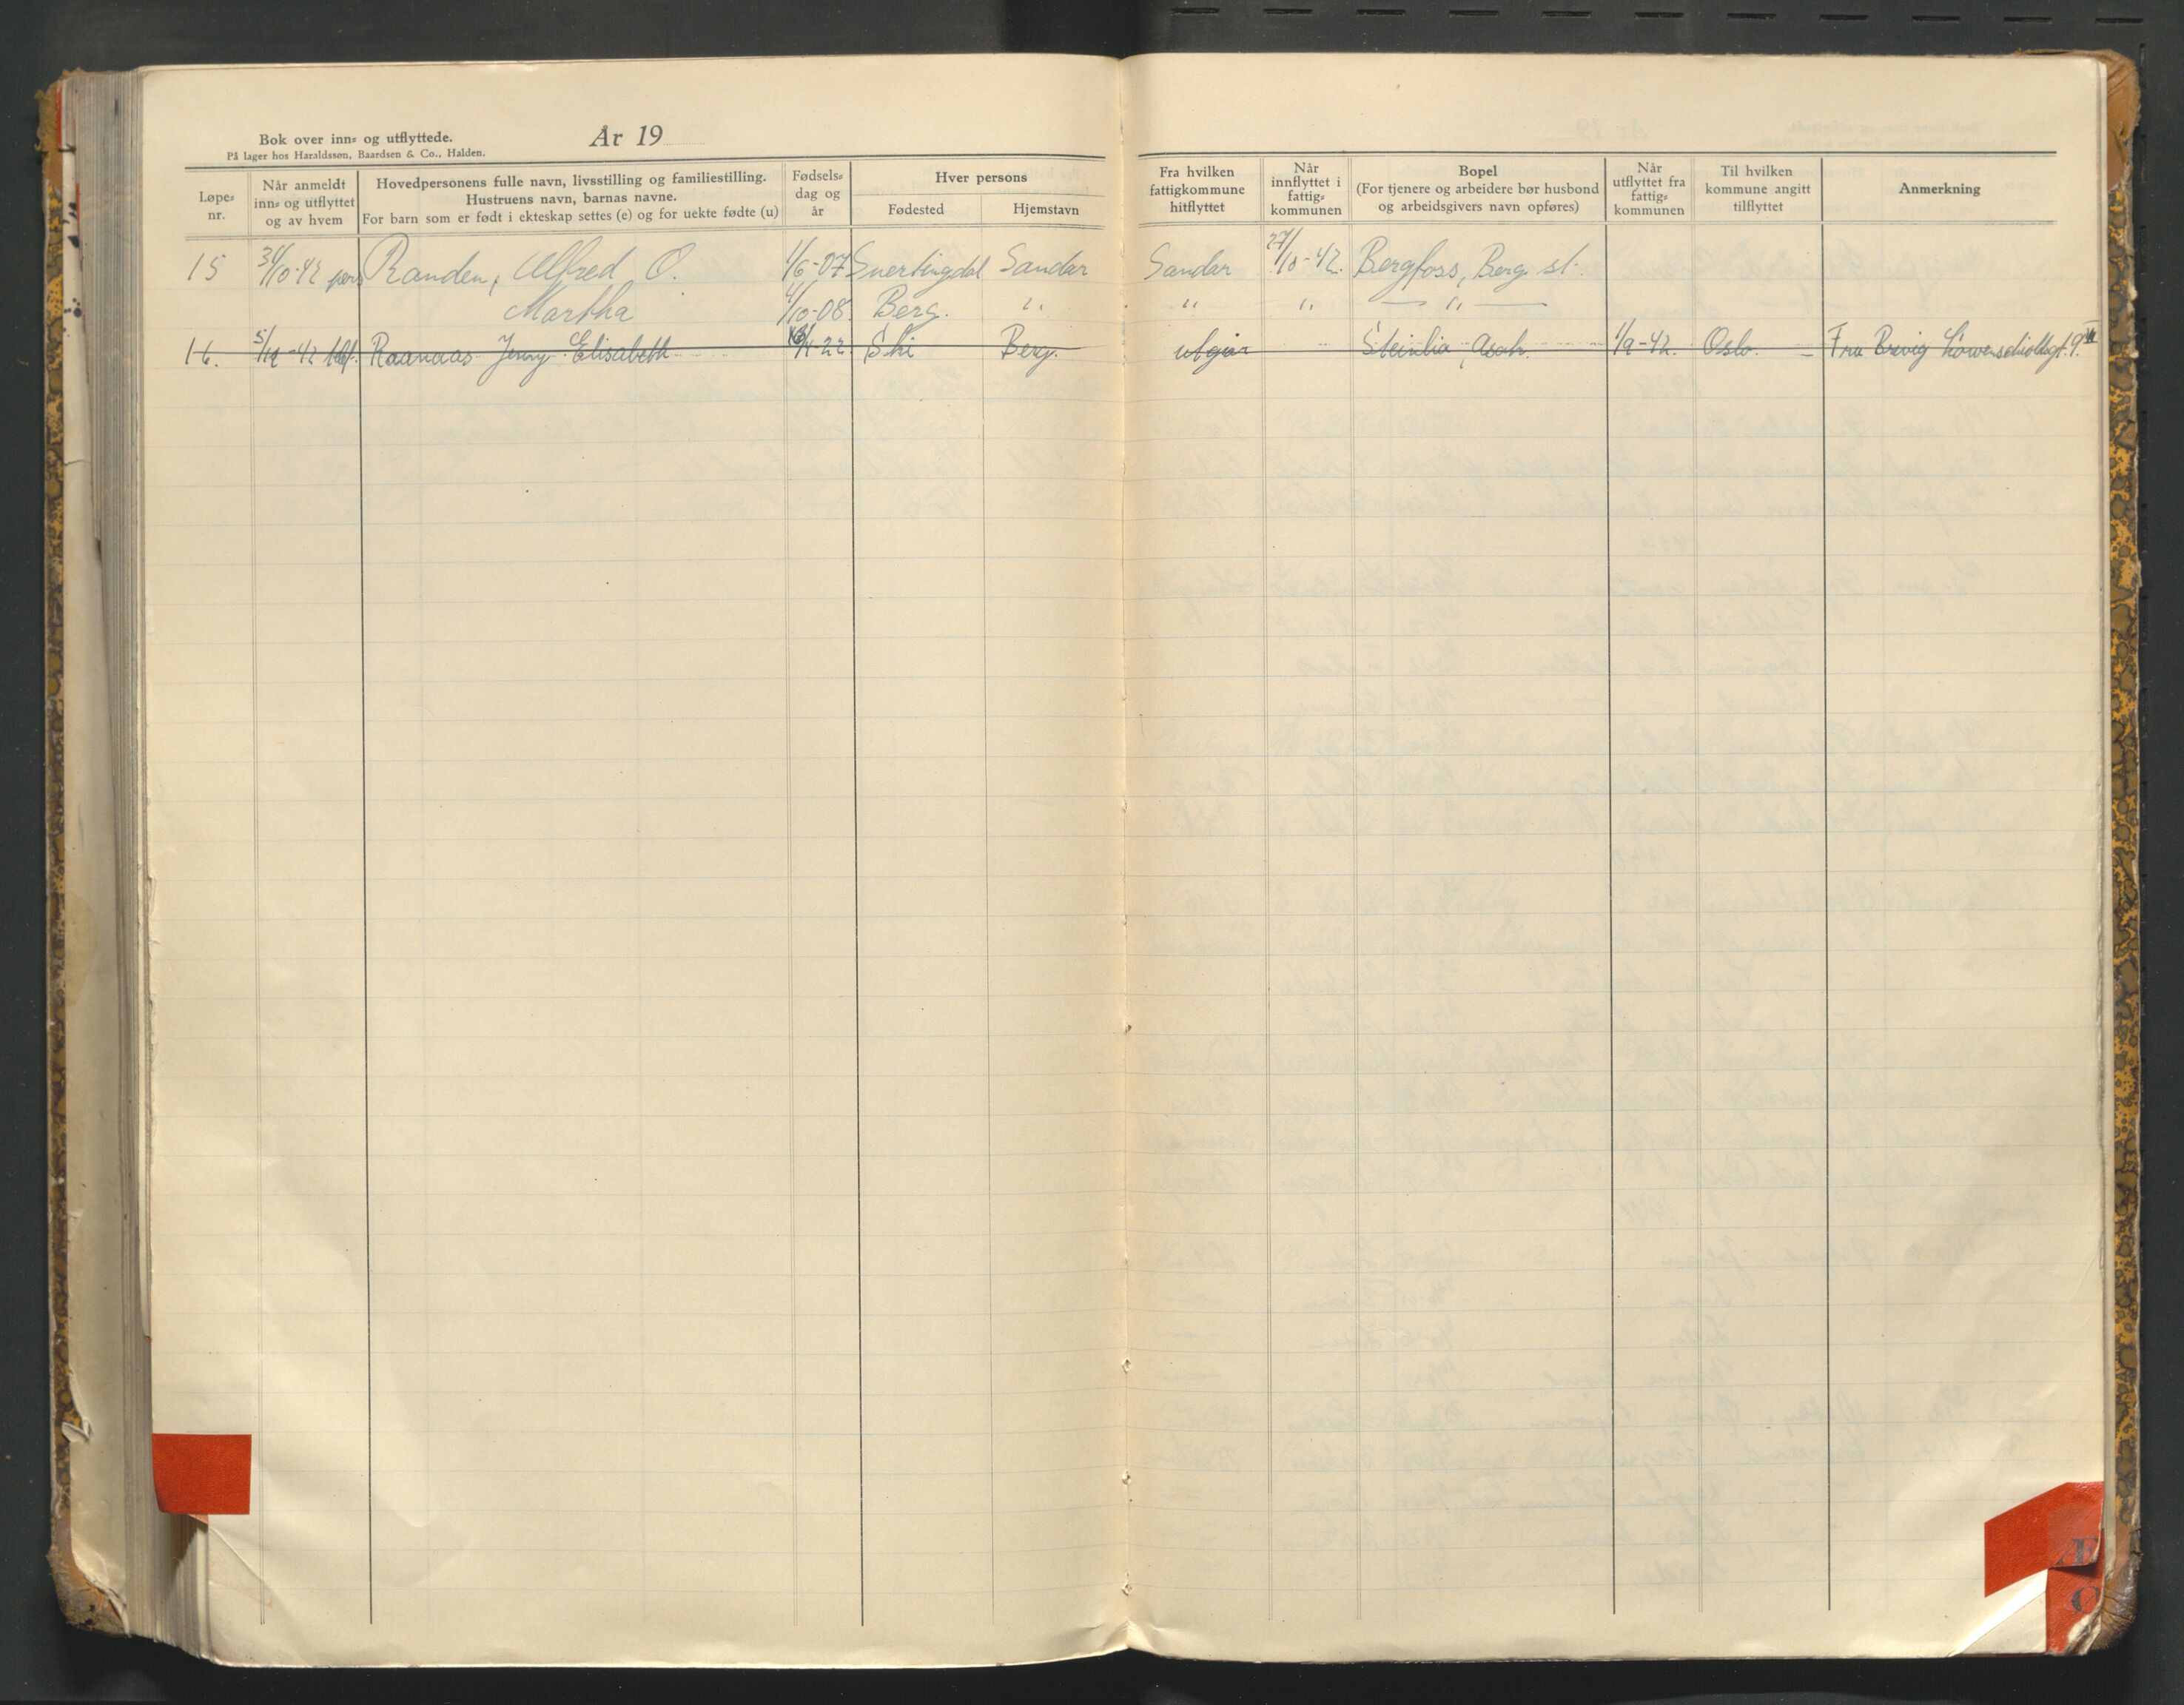 Bok over inn= og utflyttede. År 19
På lager hos Haraldsson, Baardsen & Co., Halden.
Løpe=
nr.
Når anmeldt
inn= og utflyttet
og av hvem
Hovedpersonens fulle navn, livsstilling og familiestilling.
Hustruens navn, barnas navne.
For barn som er født i ekteskap settes (e) og for uekte fødte (u)
Fødsels=
dag og
år
Hver persons
Fødested Hjemstavn
Fra hvilken
fattigkommune
hitflyttet
Når
innflyttet i
fattig=
kommunen
Bopel
(For tjenere og arbeidere bør husbond
og arbeidsgivers navn opføres)
Når
utflyttet fra
fattig=
kommunen
Til hvilken
kommune angitt
tilflyttet
Anmerkning
15 31/10-42 pers Randen, Alfred O. 1/6-07 Snertingdal Sandar Sandar 27/10-42. Bergfoss, Berg st.
Martha 4/10-08. Berg. " " " — " —
16. Raanaas Jenny Elisabeth Ski Berg. Steinlia, Asak. 1/9-42. Oslo. — Fru Brevig Løwenschioldsgt. 9
Æ
Ø